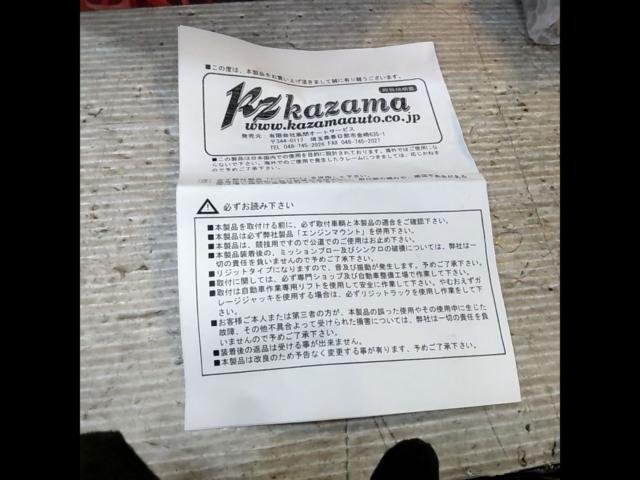 ■この度は、本製品をお買い上げ頂きまして誠に有り難うございます。
Kz kazama
取扱説明書
www.kazamaauto.co.jp
発売元 有限会社風間オートサービス
〒344-0117 埼玉県春日部市金崎635-1
TEL 048-745-2026 FAX 048-745-2027
■この製品は日本国内での使用を目的に設計されております。海外ではご使用にな
らないで下さい。海外でのご使用で発生したクレームにつきましては、応じかねます
ので予めご了承下さい。
必ずお読み下さい
■本製品を取付ける前に、必ず取付車輌と本製品の適合をご確認下さい。
■本製品は必ず弊社製品「エンジンマウント」を併用下さい。
■本製品は、競技用ですので公道でのご使用はお止め下さい。
■本製品装着後の、ミッションブロー及びシンクロの破損については、弊社は一
切の責任を負いませんので予めご了承下さい。
■リジットタイプになりますので、音及び振動が発生します。予めご了承下さい。
■取付に関しては、必ず専門ショップ及び自動車整備工場で作業して下さい。
■取付は自動車作業専用リフトを使用して安全に作業して下さい。やむおえずガ
レージジャッキを使用する場合は、必ずリジットラックを使用し作業をして下
さい。
■お客様ご本人または第三者の方が、本製品の誤った使用やその使用中に生じた
故障、その他不具合よって受けられた損害については、弊社は一切の責任を負
いませんので予めご了承下さい。
■装着後の返品は受ける事が出来ません。
■本製品は改良のため予告なく変更する事が有ります、予めご了承下さい。